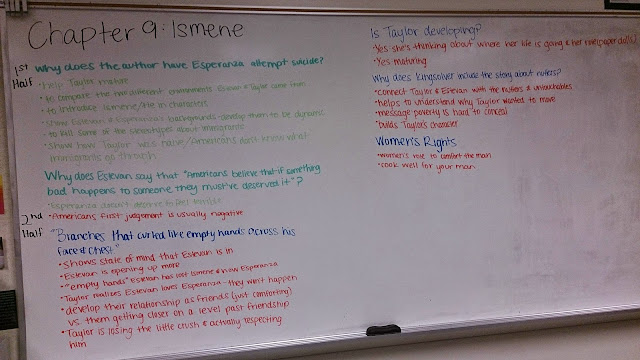 Chapter 9: Ismene
1st Half
Why does the author have Esperanza attempt suicide?
• help Taylor mature
• to compare the two different environments Estevan & Taylor came from
• to introduce Ismene/tie in characters
• Show Estevan & Esperanza's backgrounds - develop them to be dynamic
• to kill some of the stereotypes about immigrants
• Show how Taylor was naive/Americans don't know what
immigrants go through
Why does Estevan say that "Americans believe that if something
bad happens to someone they must've deserved it"?
• Esperanza doesn't deserve to feel terrible
2nd Half
• Americans first judgement is usually negative
"Branches that curled like empty hands across his
face & chest"
• Shows state of mind that Estevan is in
• Estevan is opening up more
• "empty hands" Estevan has lost Ismene & now Esperanza
• Taylor realizes Estevan loves Esperanza - they won't happen
• develop their relationship as friends (just comforting)
vs. them getting closer on a level past friendship
• Taylor is losing the little crush & actually respecting
him
Is Taylor developing?
• Yes she's thinking about where her life is going & her
• Yes maturing
Why does Kingsolver include the story about nutters?
• connect Taylor & Estevan with the nutters & untouchables
• helps to understand why Taylor wanted to move
• message poverty is hard to conceal
• builds Taylor's character
Women's Rights
• women's role to comfort the man
• cook well for your man